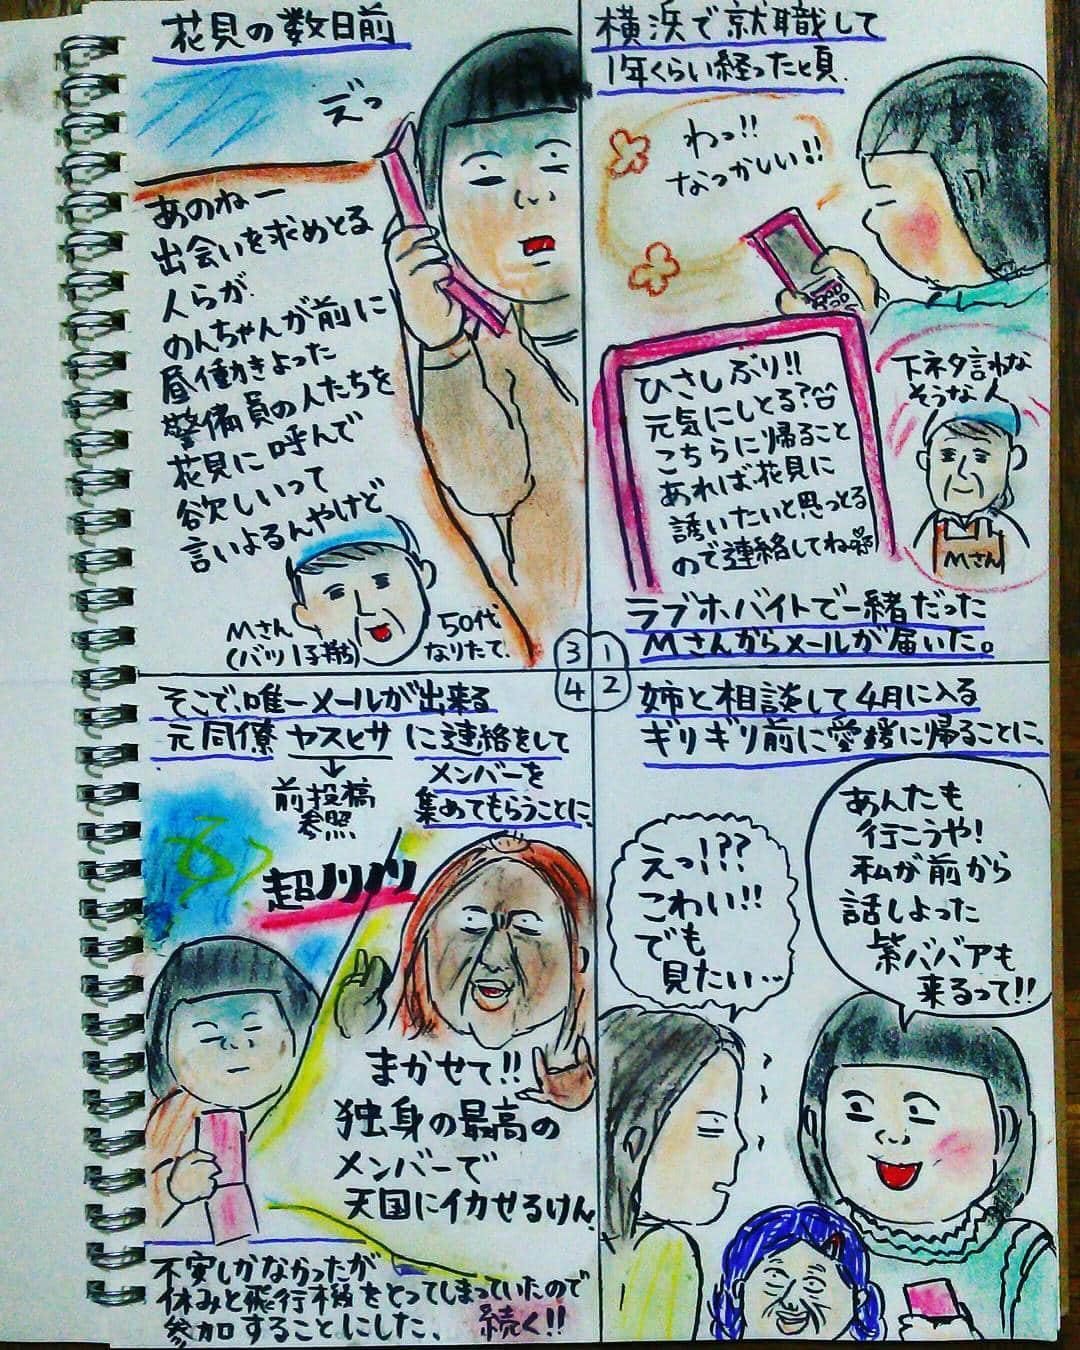 横浜で就職して
1年くらい経った頃
わっ!!
なつかしい!!
ひさしぶり!!
元気にしとる?
こちらに帰ること
あれば花見に
誘いたいと思っとる
ので連絡してね
下ネタ言わな
そうな人
Mさん
ラブホバイトで一緒だった
Mさんからメールが届いた。
1
2
姉と相談して4月に入る
ギリギリ前に愛媛に帰ることに、
あんたも
行こうや!
私が前から
話しよった
紫ババアも
来るって!!
えっ!??
こわい!!
でも
見たい…
花見の数日前
えっ
あのねー
出会いを求めとる
人らが
のんちゃんが前に
昼働きよった
警備員の人たちを
花見に呼んで
欲しいって
言いよるんやけど
Mさん
(バツ1子持ち)
50代
なりたて、
3
4
そこで、唯一メールが出来る
元同僚 ヤスヒサ に連絡をして
メンバーを
集めてもらうことに、
前投稿
参照
超ノリノリ
まかせて!!
独身の最高の
メンバーで
天国にイカせるけん
不安しかなかったが
休みと飛行機をとってしまっていたので
参加することにした、 続く!!